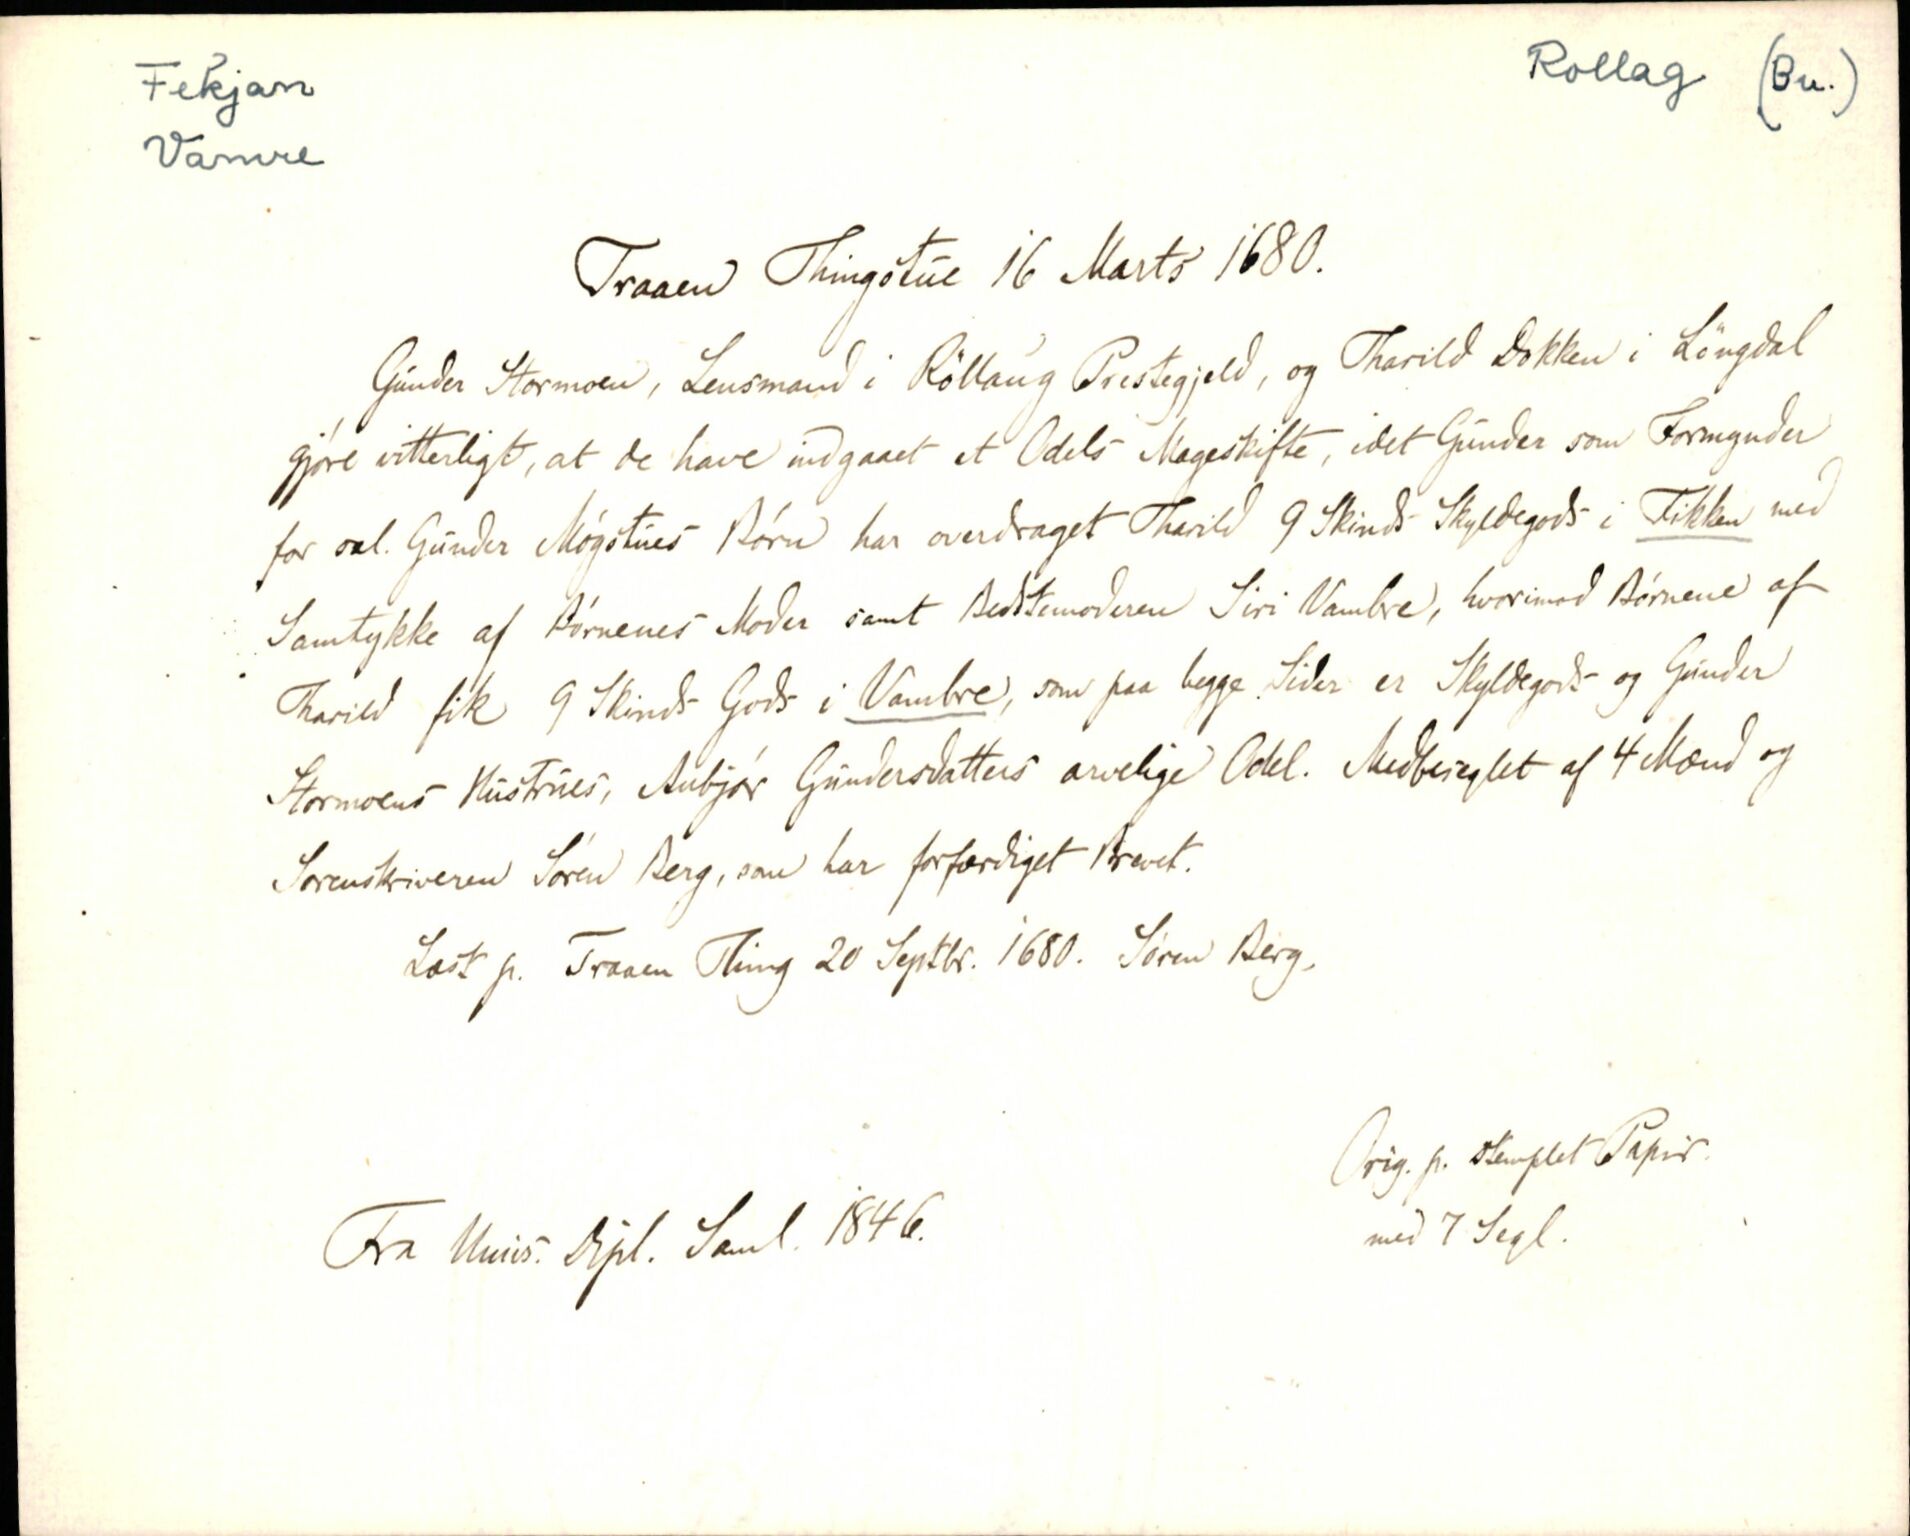 Fekjan
Vamre
Rollag (Bu.)
Traaen Thingstue 16 Marts 1680.
Gunder Stormoen, Lensmand i Röllaug Prestegjeld, og Tharild Dokken i Löngdal
gjøre vitterligt, at de have indgaaet et Odels Mageskifte, idet Gunder som Formynder
for sal. Gunder Møgstues Børn har overdraget Tharild 9 Skinds Skyldegods i Fikken med
Samtykke af Børnenes Moder samt Bedstemoderen Siri Vambre, hvorimod Børnene af
Tharild fik 9 Skinds Gods i Vambre, som paa begge Sider er Skyldegods og Gunder
Stormoens Hustrues, Anbjør Gundersdatters arvelige Odel. Medbeseglet af 4 Mænd og
Sorenskriveren Søren Berg, som har forfærdiget Brevet.
Læst p. Traaen Thing 20 Septbr. 1680. Søren Berg.
Orig. p. stemplet Papir
med 7 Segl.
Fra Univs. Dipl. Saml. 1846.